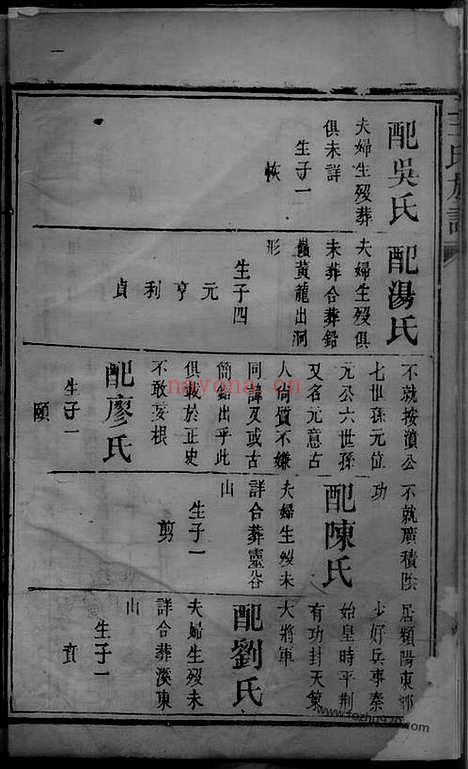 王氏族譜
配吳氏
夫婦生歿葬
俱未詳
生子一
恢
配湯氏
夫婦生歿俱
未葬合葬鉛
黃龍出洞
形
生子四
元亨利貞
不就按濱公
七世孫元位
元公六世孫
又名元意古
人尚質不嫌
同諱及或古
簡錯出乎此
俱載於正史
不敢妄根
配廖氏
生子一
頤
不就廣積陰
功
配陳氏
夫婦生歿未
詳合葬靈谷
山
生子一
剪
居頻陽東鄉
少好兵事秦
始皇時平荆
有功封天策
大將軍
配劉氏
夫婦生歿未
詳合葬溪東
山
生子一
賁
nayona.cn